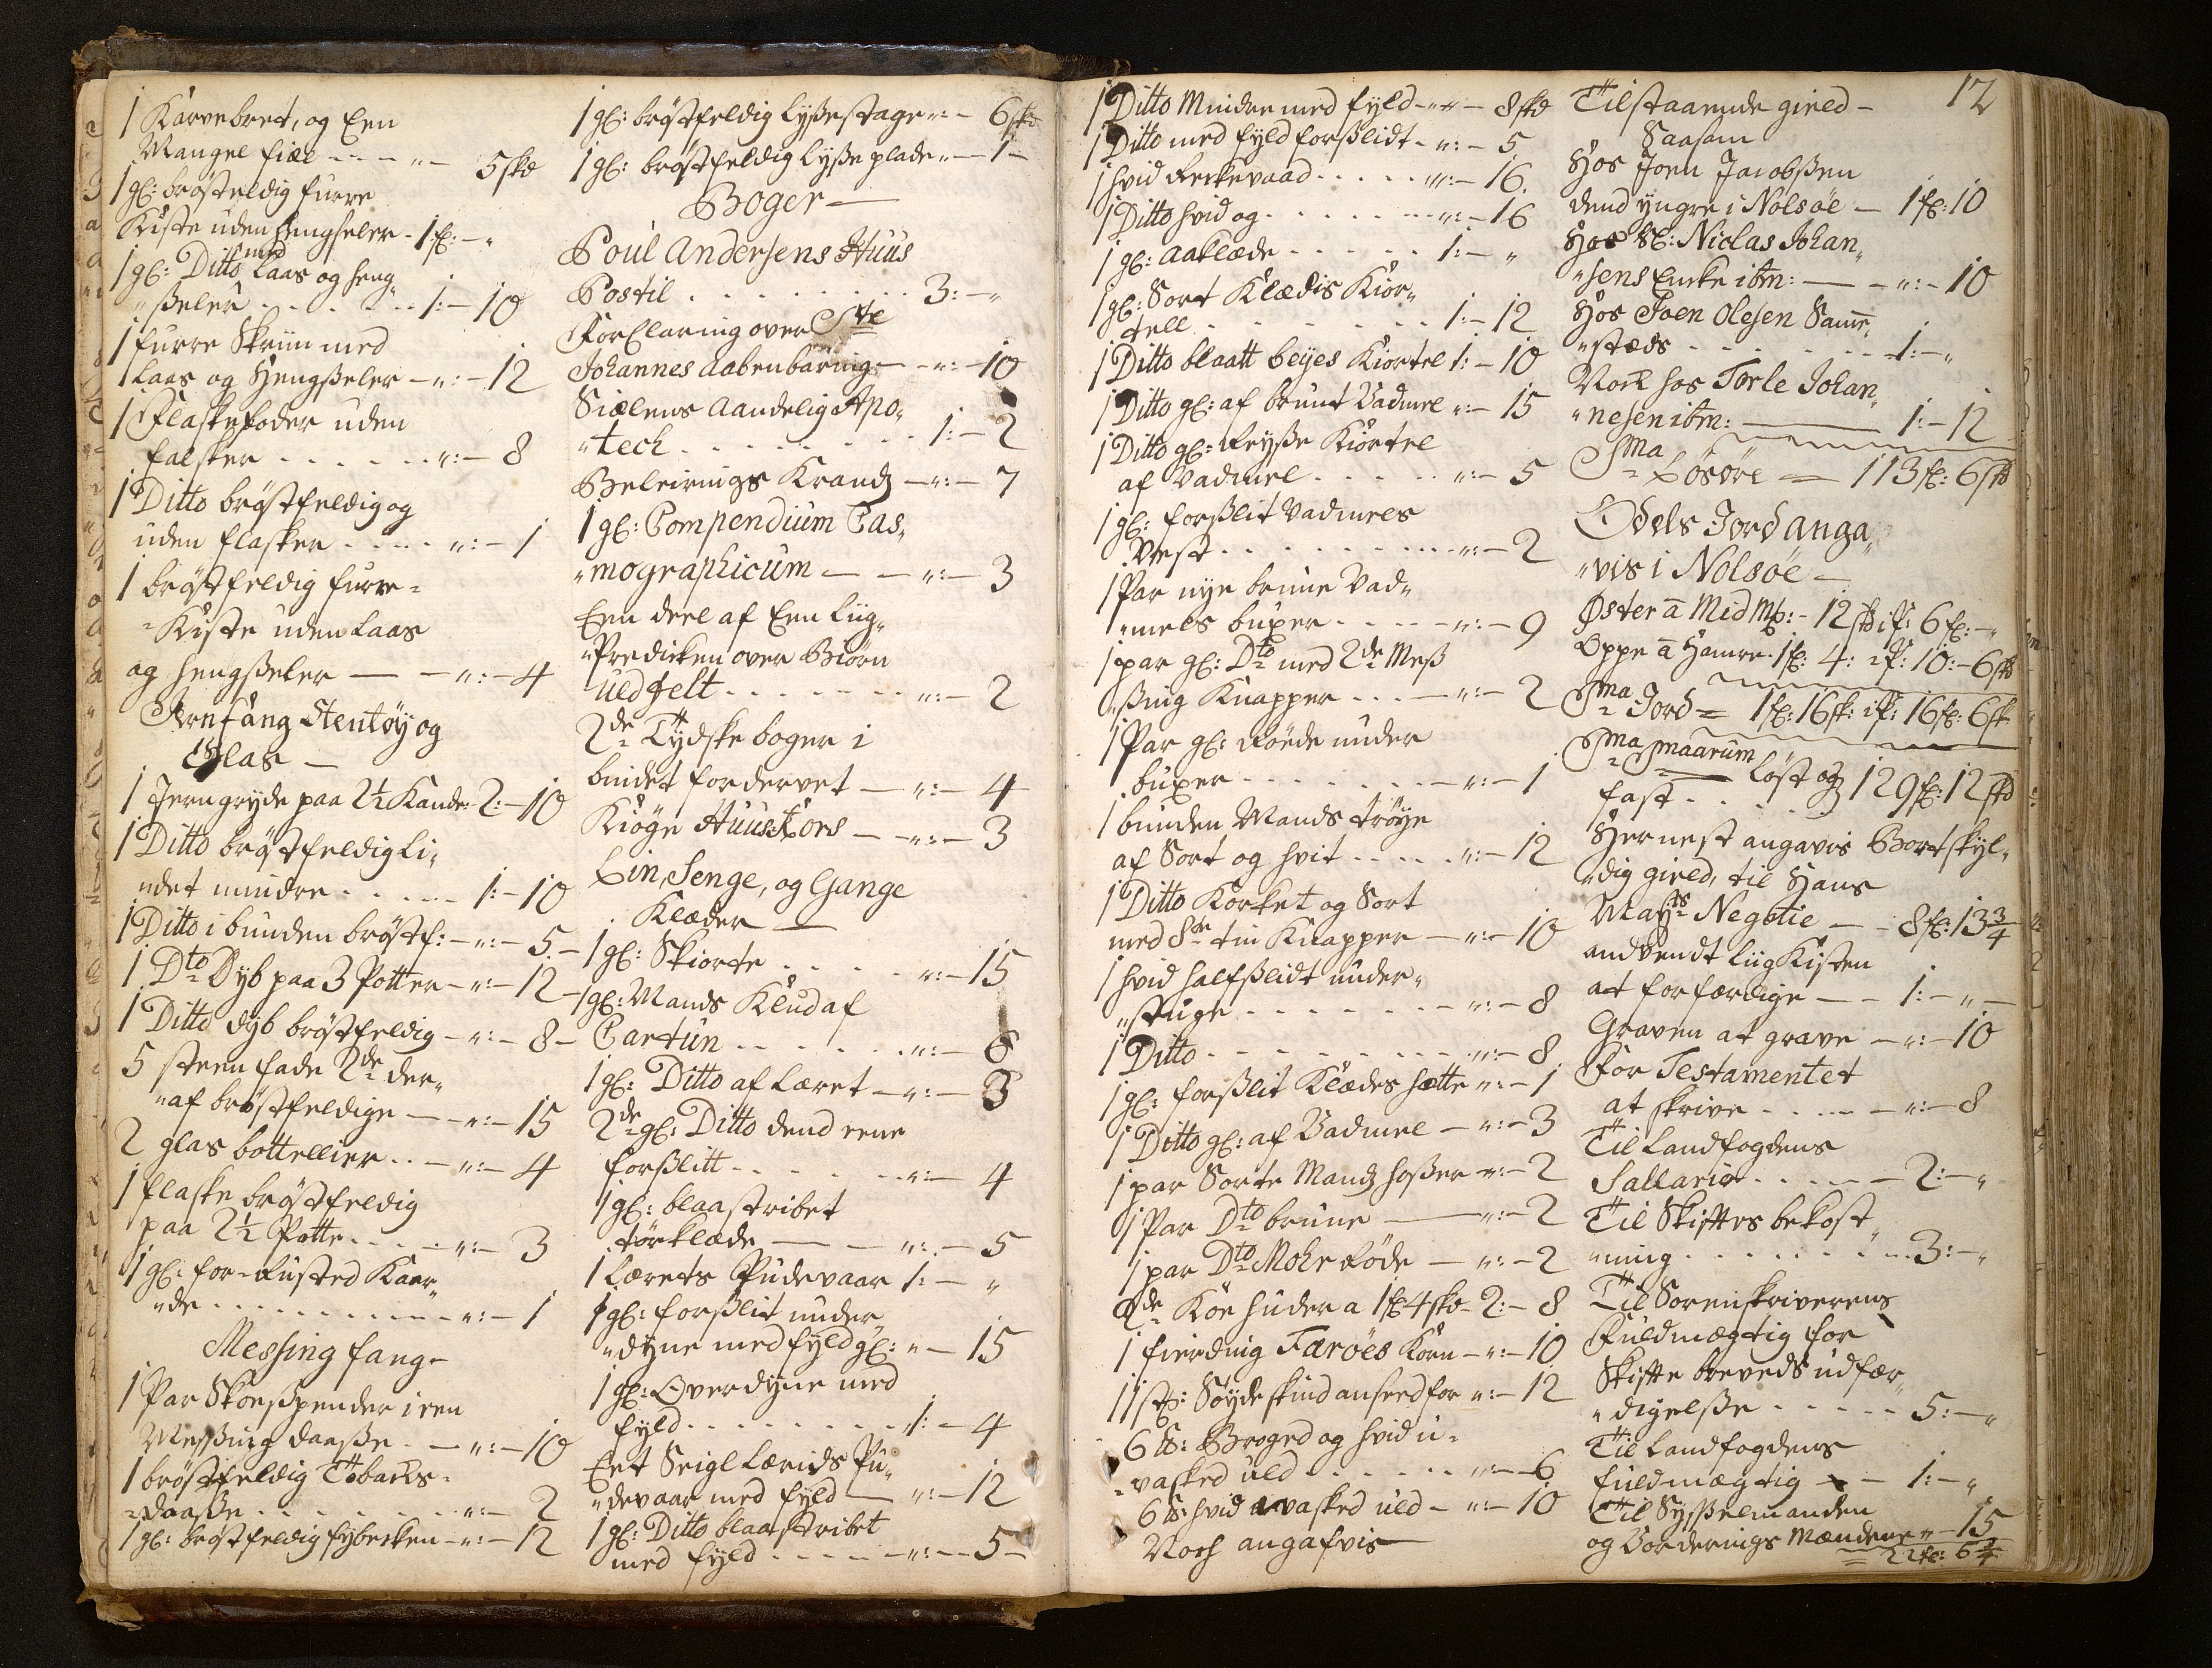 1 Karvebret, og Een
Mangel fiæl - - - " - 5 skd
1 gl: bröstfeldig furre
Kiste uden Hengseler - 1 fl: - "
1 gl: Ditto med Laas og heng„
„sseler . . . . . 1: - 10
1 furre Skriin med
Laas og Hengsseler - ": - 12
1 Flaskefoder uden
falsker . . . . . ": - 8
1 Ditto bröstfeldig og
uden flasker . . . . ": - 1
1 bröstfeldig furre=
=Kiste uden Laas
og hengsseler — - ": - 4
Jernfang Stentöy og
Glas —
1 Jerngryde paa 2½ Kande: 2: - 10
1 Ditto bröstfeldig Li„
idet mindre . . . . 1: - 10
1 Ditto i bunden bröstf: - ": - 5 -
1 Dto Dyb paa 3 Potter - ": - 12 -
1 Ditto dyb bröstfeldig - ": - 8 -
5 steen fade 2de der„
„af bröstfeldige — ": - 15
2 glas bottellier . . - ": - 4
1 flaske bröstfeldig
paa 2½ Potte . . . - ": - 3
1 gl: for-Rusted Kaar„
„de . . . . . . . . ": - 1
Messing fang -
1 Par Skoesspender i een
Messing daasse . - ": - 10
1 bröstfeldig Tobacks=
=daasse . . . . . . ": - 2
1 gl: bröstfeldig fyrbecken - ": - 12
1 gl: bröstfeldig lyssestage ": - 6 skd
1 gl: bröstfeldig lysse plade " - 1 -
Boger —
Poul Andersens Huus
Postil . . . . . . . . 3: - "
Forclaring over Ste
Johannes Aabenbaring - - ": - 10
Siælens Aandelig Apo„
„tech . . . . . . . . 1: - 2
Beleirings Krandz - ": - 7
1 gl: Compendium Cas„
„mographicum — - ": - 3
Een deel af Een Liig„
„Predicken over Biörn
Uldfelt . . . . . . . ": - 2
2de Tydske boger i
bindet fordervet — ": - 4
Kiöge Huus:Kors — - ": - 3
Lin, Senge, og Gange
Klæder —
1 gl: Skiorte . . . . . ": - 15
1 gl: Mands Klud af
Cartun . . . . . . ": - 6
1 gl: Ditto af Læret - - ": - 3
2de gl: Ditto dend eene
forsslitt . . . . . . ": - 4
1 gl: blaastribet
törklæde — - ": - 5
1 Lærets Pudevaar 1: - "
1 gl: forsslit under„
„dyne med fyld gl: " - 15
1 gl: Overdyne med
fyld . . . . . . . . 1: - 4
Eet Seigl Lærids Pu„
„devaar med fyld — ": - 12
1 gl: Ditto blaastribet
med fyld . . . . - ": - 5 -
1 Ditto Mindre med fyld - " - 8 skd
1 Ditto med fyld forsslidt - ": - 5
1 hvid Reckevaad . . . . ": - 16.
1 Ditto hvid og . . . . . ": - 16
1 gl: Aaklæde . . . . . . 1: - "
1 gl: Sort Klædis Kior„
tell . . . . . . . . 1: - 12
1 Ditto blaatt beyes Kiortel 1: - 10
1 Ditto gl: af brunt Vadmel ": - 15
1 Ditto gl: Reysse Kiörtel
af Vadmel . . . . . ": - 5
1 gl: forsslit Vadmels
Vest . . . . . . . . ": - 2
1 Par nye brune Vad„
„mels buxer . . . . - ": - 9
1 par gl: Dto med 2de Mess
ssing Knapper . . . - ": - 2
1 Par gl: Röede under
buxer . . . . . . . - ": - 1
1 bunden Mands tröye
af Sort og hvit . . . . ": - 12
1 Ditto Korket og Sort
med 8te tin Knapper - ": - 10
1 hvid halfsslidt under„
„stuge . . . . . . . - ": - 8
1 Ditto . . . . . . . . ": - 8
1 gl: forsslit Klædes hætte ": - 1
1 Ditto gl: af Vadmel - ": - 3
1 par Sorte Mandz hosser ": - 2
1 Par Dto brune — ": - 2
1 par Dto Mohr Röde - ": - 2
2de Köe huder a 1 fl 4 skd - 2: - 8
1 fierding Færöes Korn - ": - 10
11 st: Söyde skind anseed for ": - 12
6 ℔: Broged og hvid u=
=vasked uld . . . . . ": - 6
6 ℔: hvid uvasked uld - ": - 10
Noch angafvis —
12
Tilstaaende gield -
Saasom
Hos Joen Jacobssen
dend yngre i Nolsöe - 1 fl: 10
Hos Sl: Niclas Johan„
„sens Encke ibm: — - ": - 10
Hos Joen Olesen Samme„
„stæds . . . . . . . 1: - "
Noch hos Torle Johan„
„nesen ibm: — 1: - 12
Sma Lösöre = 113 fl: 6 skd
Odels Jord anga„
„vis i Nolsöe —
Öster a Mid
Oppe a Hamre. 1 fl: 4: 10: - 6 skd
Sma Jord = 1 fl: 16 sk: 16 fl: 6 sk
Sma Smaarum löst og
fast . . . . . 129 fl: 12 skd
Hernest angavis Bortskyl„
„dig gield, til Hans
Mayts Negotie - - 8 fl: 13¾
andvendt liig Kisten
at forfærdige - - 1: - " -
Graven at grave - ": - 10
For Testamentet
at skrive . . . - ": - 8
Til Landfogdens
Sallario . . . . - 2: - "
Til Skifttes bekost„
„ning . . . . . . . 3: - "
Til Sorenskriverens
Fuldmægtig for
Skifte brevets udfær„
„digelsse . . . . . 5: - "
Til Landfogdens
fuldmægtig - - 1: - "
Til Sysselmanden
og Vorderings Mændene " - 15
= 22 fl: 6¾